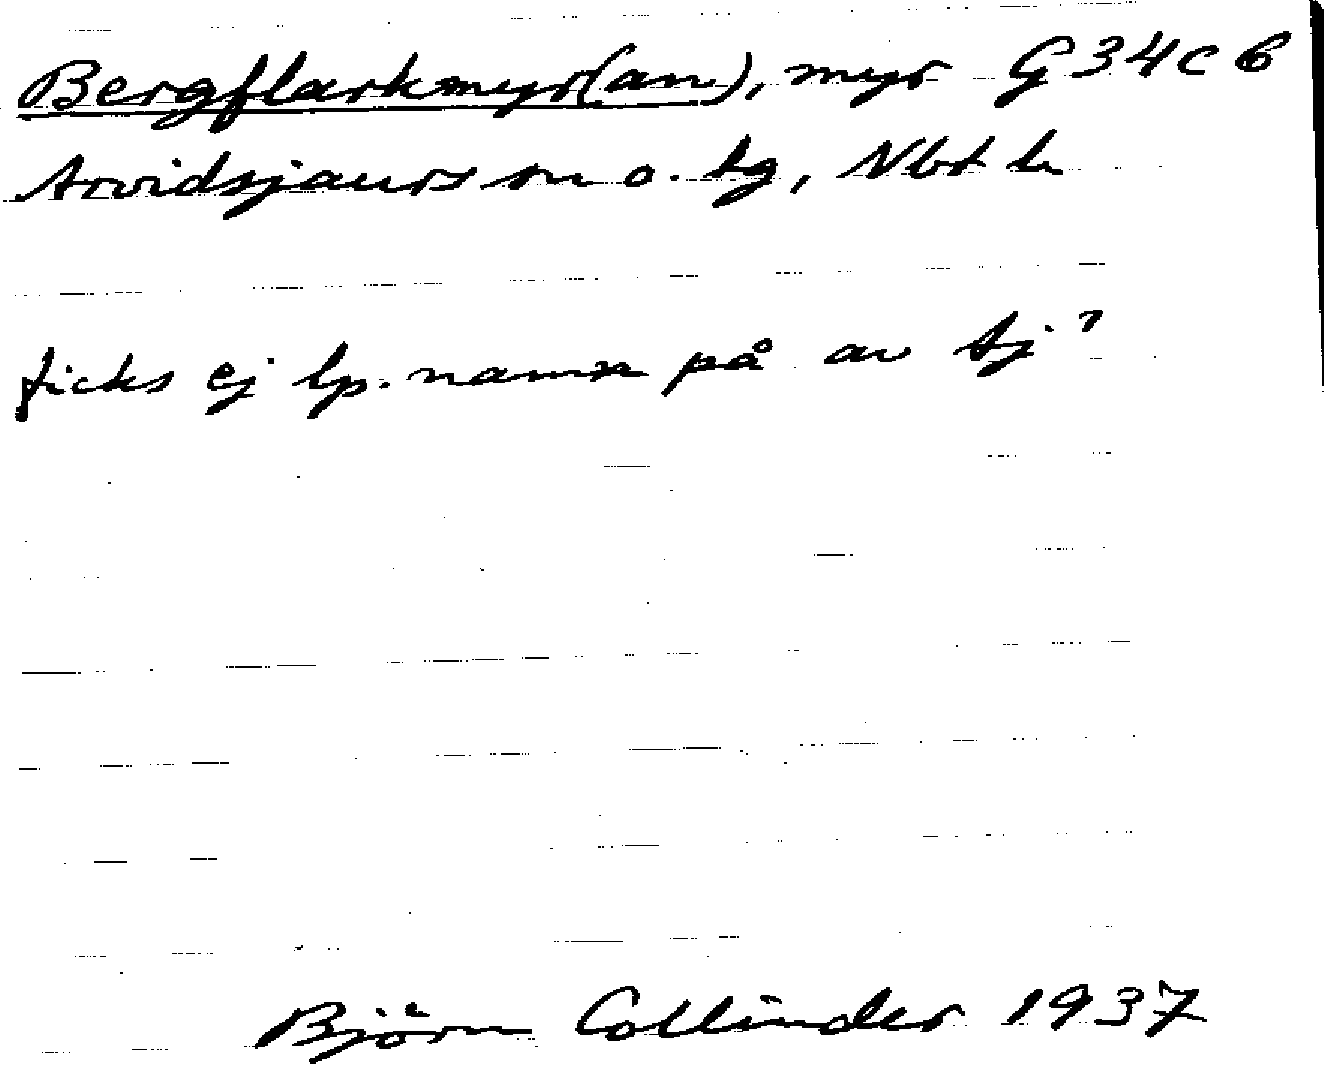 Bergflarkmyr(an), myr G 34 C 6
Arvidsjaurs sn o. tg, Nbt l.
ficks ej lp. namn på av
Björn Collinder 1937